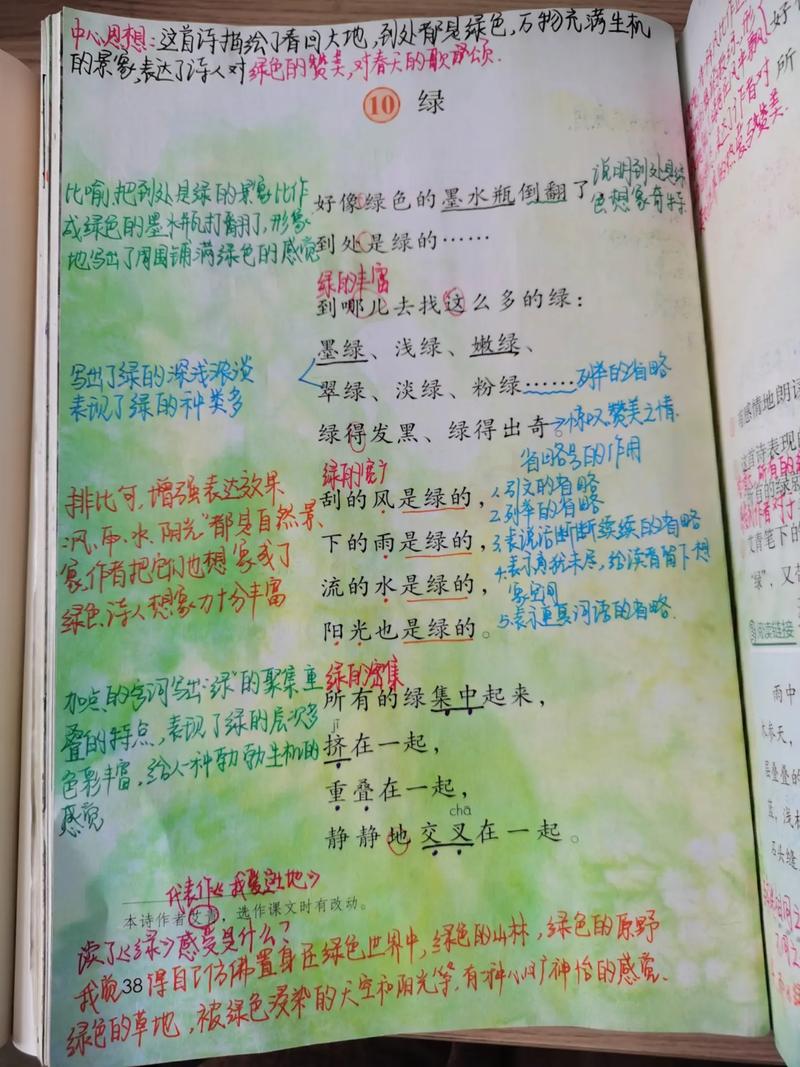 中心思想:这首诗描绘了春回大地,到处都是绿色,万物充满生机
的景象,表达了诗人对绿色的赞美,对春天的歌颂.
10 绿
比喻,把到处是绿的景象比作
成绿色的墨水瓶打翻了,形象
地写出了周围铺满绿色的感觉
好像绿色的墨水瓶倒翻了
说明到处是绿
色想象奇特
到处是绿的……
绿的丰富
到哪儿去找这么多的绿:
墨绿、浅绿、嫩绿、
翠绿、淡绿、粉绿……
列举的省略
写出了绿的深浅浓淡
表现了绿的种类多
绿得发黑、绿得出奇。
惊叹、赞美之情.
省略号的作用
1.引文的省略
2.列举的省略
3.表说话断断续续的省略
4.表示意犹未尽,给读者留下想
象空间
5.表示重复词语的省略.
绿的宽广
刮的风是绿的,
下的雨是绿的,
流的水是绿的,
阳光也是绿的。
排比句,增强表达效果
"风、雨、水、阳光"都是自然景
象,作者把它们也想象成了
绿色,诗人想象力十分丰富
绿的密集
所有的绿集中起来,
jǐ
挤在一起,
重叠在一起,
chā
静静地交叉在一起。
加点的字词写出"绿"的聚集重
叠的特点,表现了绿的层次多
色彩丰富,给人一种勃勃生机的
感觉
代表作《我爱这土地》
本诗作者艾青,选作课文时有改动。
读了《绿》感受是什么?
我觉得自己仿佛置身在绿色世界中,绿色的山林,绿色的原野
绿色的草地,被绿色浸染的天空和阳光等,有一种心旷神怡的感觉.
38
有感情地朗读
这首诗表现的
艾青笔下的
"绿",又
阅读链接
雨中
木参天,
层叠叠的
蓝,浅
石头缝